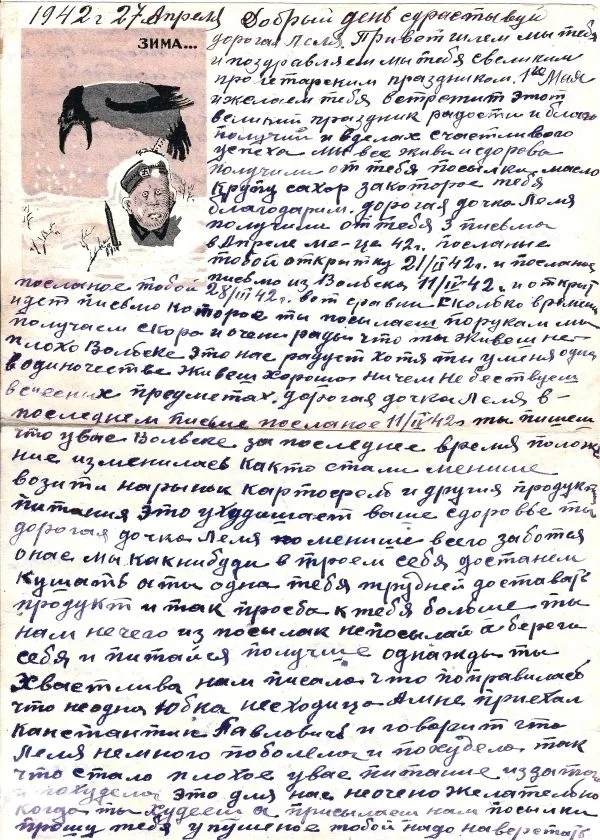 1942 г 27 Апреля Добрый день сдраствуй
ЗИМА...
дорогая Леля. Привет шлем мы тебя
и поздравляем мы тебя с великим
пролетарским праздником. 1ое Мая
и желаем тебя встретит этот
великий праздник радости и благо
получий и в делах счастливого
успеха мы все живи и здоровы
получили от тебя посылки масло
крупу сахор за которое тебя
благодарим. дорогая дочка Леля
получили от тебя 3 письма
в Апреле ме-це 42 г. послание
тобой открытку 21/II 42 г. и посланое
письмо из Вольска 11/IV 42 г. и открит
посланое тобой 28/III 42 г. вот сравни сколько времени
идет письмо которое ты посылаеш по рукам мы
получаем скоро и очени рады что ты живеш не-
плохо Вольске это нас радует хотя ти у меня одна
в одиночестве живеш хорошо ничем не бествуеш
в предметах. дорогая дочка Леля в-
последнем письме посланое 11/IV 42 г ты пишеш
что у вас Вольске за последнее время полож
ние изменилась как то стали менише
возити нарынък картосфель и другия продукт
питания это ухудшает ваше здоровье ты
дорогая дочка Леля по менише всего заботся
о нас мы как нибуди в троем себя достанем
кушать а ты одна тебя трудней доставать
продукт и так просба к тебя больше ты
нам нечего из посылак непосылай а береги
себя и питайся получше однажды ты
хвастлива нам писала что поправилась
что не одна юбка несходица. А мне приехал
Канстантин Павловичь и говорит что
Леля немного поболела и похудела так
что стало плохое у вас питание из за того
и похудела это для нас неочено желательно
когда ты худееш а присылаеш нам посылки
прошу тебя упушеное тобой надо наверстать